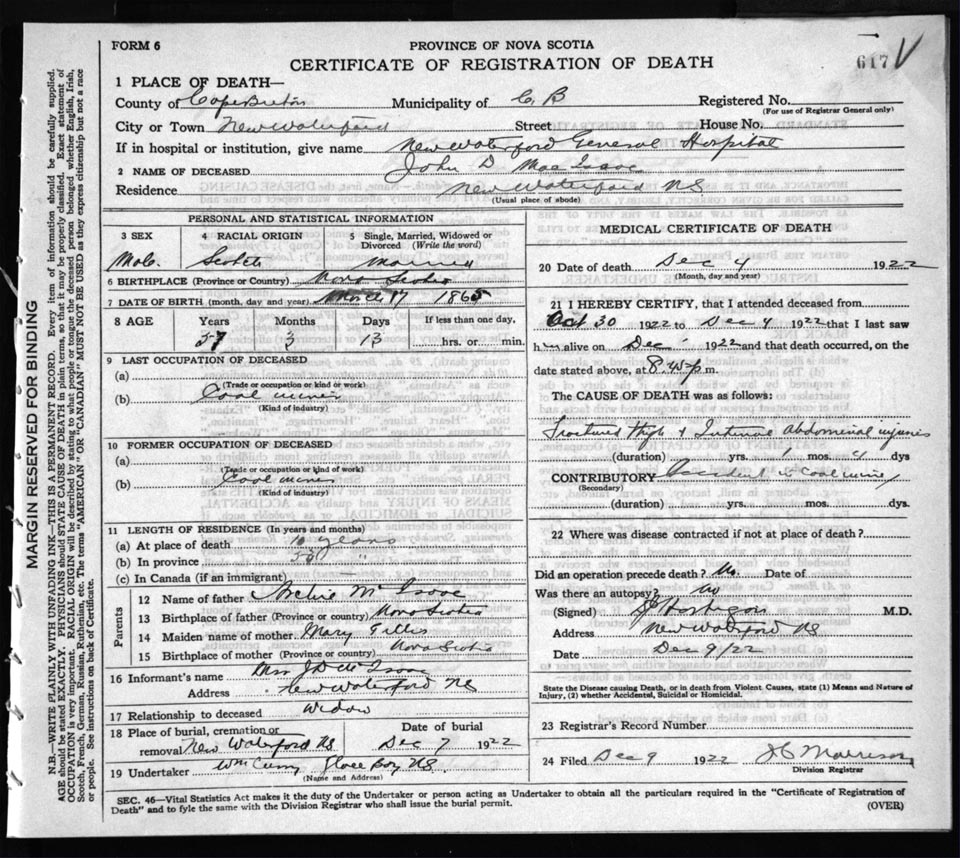 FORM 6
PROVINCE OF NOVA SCOTIA
CERTIFICATE OF REGISTRATION OF DEATH
617 V
1 PLACE OF DEATH—
County of Cape Breton Municipality of C B Registered No.
(For use of Registrar General only)
City or Town New Waterford Street House No.
If in hospital or institution, give name New Waterford General Hospital
2 NAME OF DECEASED John D Mac Isaac
Residence New Waterford NS
(Usual place of abode)
PERSONAL AND STATISTICAL INFORMATION
3 SEX 4 RACIAL ORIGIN 5 Single, Married, Widowed or Divorced (Write the word)
Male Scotch Married
6 BIRTHPLACE (Province or Country) Nova Scotia
7 DATE OF BIRTH (month, day and year) March 17 1865
8 AGE Years Months Days If less than one day,
57 3 13 hrs. or min.
9 LAST OCCUPATION OF DECEASED
(a)
(Trade or occupation or kind or work)
(b) Coal miner
(Kind of industry)
10 FORMER OCCUPATION OF DECEASED
(a)
(Trade or occupation or kind or work)
(b) Coal miner
(Kind of industry)
11 LENGTH OF RESIDENCE (In years and months)
(a) At place of death 10 years
(b) In province 57 "
(c) In Canada (if an immigrant)
Parents
12 Name of father Archie Mc Isaac
13 Birthplace of father (Province or country) Nova Scotia
14 Maiden name of mother Mary Gillis
15 Birthplace of mother (Province or country) Nova Scotia
16 Informant's name Mrs J D Mc Isaac
Address New Waterford NS
17 Relationship to deceased widow
18 Place of burial, cremation or removal New Waterford NS Date of burial Dec 7 1922
19 Undertaker Wm Curry Glace Bay NS
(Name and Address)
MEDICAL CERTIFICATE OF DEATH
20 Date of death Dec 4 1922
(Month, day and year)
21 I HEREBY CERTIFY, that I attended deceased from
Oct 30 1922 to Dec 4 1922 that I last saw
him alive on Dec 1922 and that death occurred, on the
date stated above, at 8.45 p m.
The CAUSE OF DEATH was as follows:
Fractured thigh & Internal Abdomenal injuries
(duration) yrs. 1 mos. 4 dys
CONTRIBUTORY Accident in Coal mine
(Secondary)
(duration) yrs. mos. dys.
22 Where was disease contracted if not at place of death?
Did an operation precede death? No. Date of
Was there an autopsy? No
(Signed) M.D.
Address New Waterford NS
Date Dec 9/22
State the Disease causing Death, or in death from Violent Causes, state (1) Means and Nature of Injury, (2) whether Accidental, Suicidal or Homicidal.
23 Registrar's Record Number
24 Filed Dec 9 1922 J C Morrison
Division Registrar
SEC. 46—Vital Statistics Act makes it the duty of the Undertaker or person acting as Undertaker to obtain all the particulars required in the "Certificate of Registration of
Death" and to fyle the same with the Division Registrar who shall issue the burial permit.
(OVER)
MARGIN RESERVED FOR BINDING
N.B.—WRITE PLAINLY WITH UNFADING INK—THIS IS A PERMANENT RECORD. Every item of information should be carefully supplied.
AGE should be stated EXACTLY. PHYSICIANS should STATE CAUSE OF DEATH in plain terms, so that it may be properly classified. Exact statement of
OCCUPATION is very important. RACIAL ORIGIN will be described by stating to what people or tongue the deceased person belonged whether English, Irish,
Scotch, French, German, Russian, Ruthenian, etc. The terms "AMERICAN" OR "CANADIAN" MUST NOT BE USED as they express citizenship but not a race
or people. See instructions on back of Certificate.